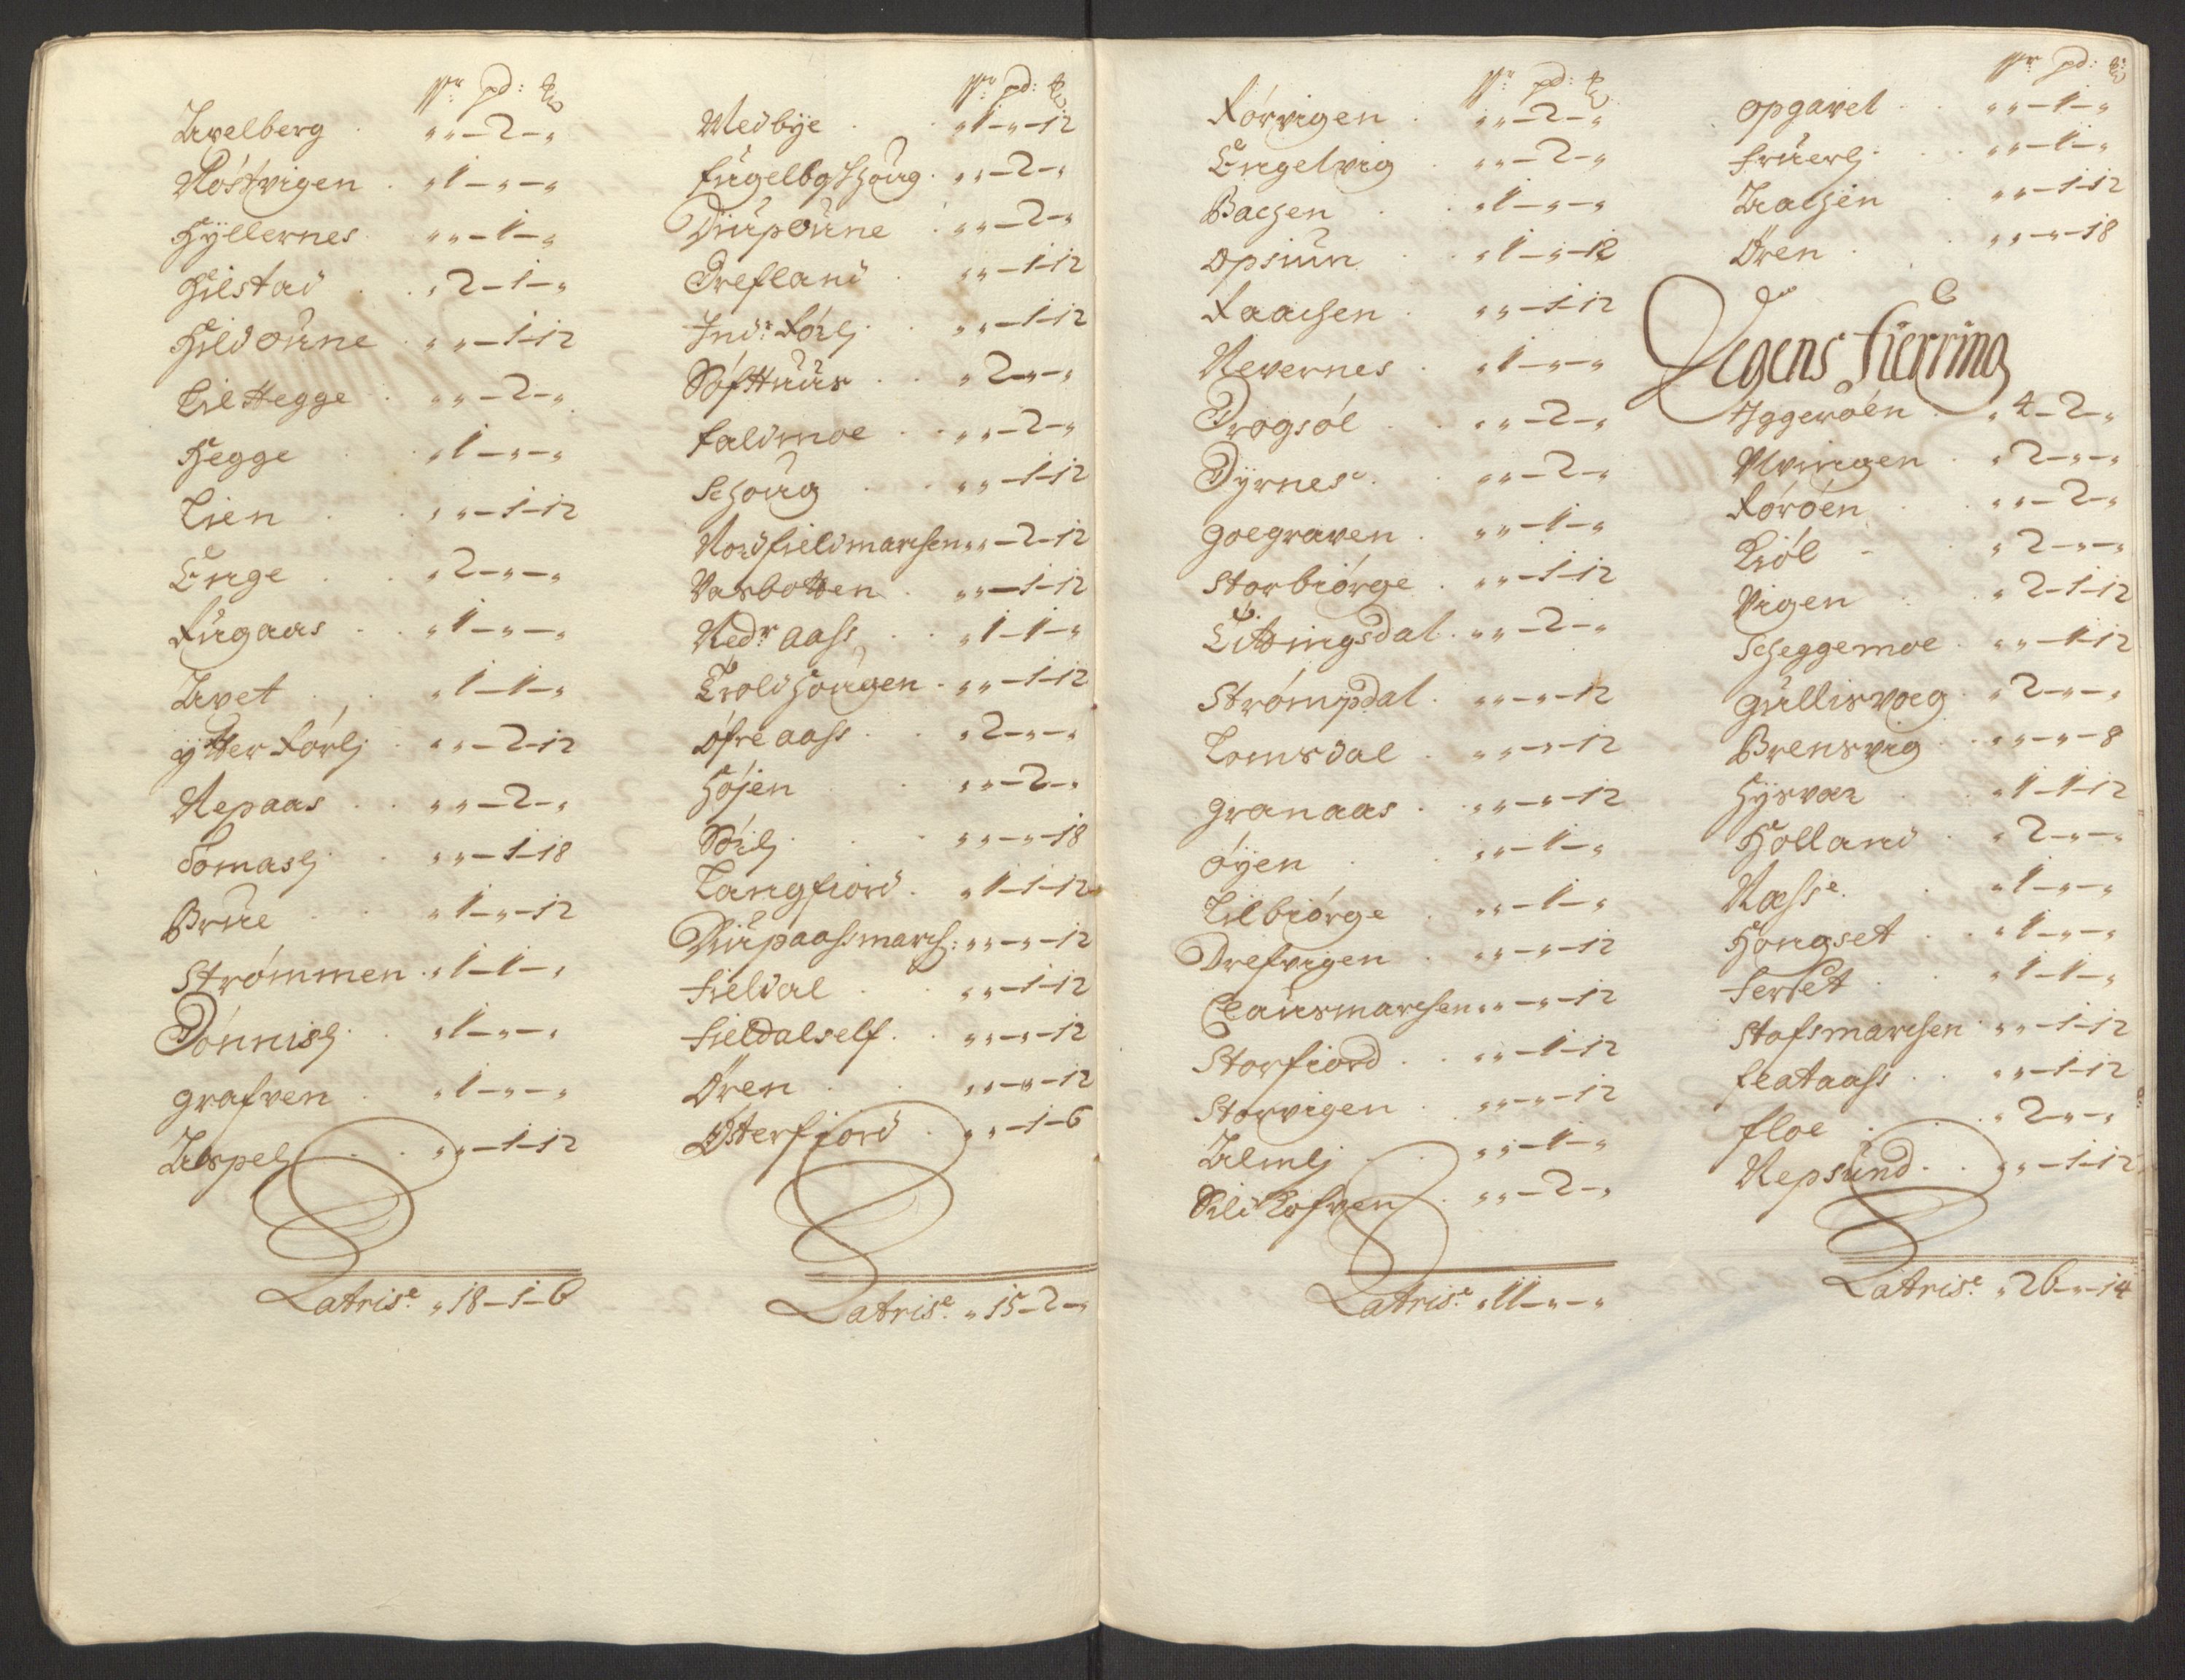 pd:
Avelberg . „ „ – 2 – „
Røstvigen . „ 1 – „ – „
Hÿllernes „ „ – 1 – „
Hilstad . . „ 2 – 1 – „
Hildoune . „ „ – 1 – 12
Lil Hegge . „ „ – 2 – „
Hegge . . „ 1 – „ – „
Lien . . „ „ – 1 – 12
Enge . . „ 2 – „ – „
Fugaas . . „ 1 – „ – „
Avet . . „ 1 – 1 – „
ÿtter Forlj . „ „ – 2 – 12
Repaas . . „ „ – 2 – „
Tomaslj . „ „ – 1 – 18
Brue . . „ 1 – „ – 12
Strømmen . „ 1 – 1 – „
Dønnislj . „ 1 – „ – „
grafven . „ 1 – „ – „
Aspelj . . „ „ – 1 – 12
Latris.e „ 18 – 1 – 6
pd:
Medbÿe . „ 1 – „ – 12
fugelbg Schoug . „ „ – 2 – „
Diupoune . „ „ – 2 – „
Drefland . „ „ – 1 – 12
Indr. Forlj . „ „ – 1 – 12
Søfttuus . . „ 2 – „ – „
faldmoe . . „ „ – 2 – „
Schoug . . „ „ – 1 – 12
Nordfieldmarchen „ „ – 2 – 12
Vasbotten . „ „ – 1 – 12
Nedr aass . . „ 1 – 1 – „
Troldhougen . „ „ – 1 – 12
øfre aass . . „ 2 – „ – „
Højen . . „ „ – 2 – „
Sørlj . . „ „ – „ – 18
Langfiord . „ 1 – 1 – 12
Diupaassmarch: „ „ – „ – 12
Fieldal . . „ „ – 1 – 12
Fieldalself . . „ „ – „ – 12
Øren . . „ „ – „ – 12
Otterfjord . „ „ – 1 – 6
Latris.e „ 15 – 2 – „
pd:
Forvigen . „ „ – 2 – „
Engelvig . „ „ – 2 – „
Bachen . . „ 1 – „ – „
Opsiun . . „ 1 – „ – 12
Raachen . „ „ – 1 – 12
Revernes . „ 1 – „ – „
Drogsøl . . „ „ – 2 – „
Dÿrnes . . „ „ – 2 – „
goegraven . „ „ – 1 – „
Storbiørge . „ „ – 1 – 12
Eittringsdal . „ „ – 2 – „
Strømpdal . „ „ – „ – 12
Lomsdal . „ „ – „ – 12
granaas . „ „ – „ – 12
øÿen . . „ „ – 1 – „
Lilbiørge . „ „ – 1 – „
Drefvigen . „ „ – „ – 12
Clausmarchen „ „ – „ – 12
Storfiord . . „ „ – 1 – 12
Storvigen . „ „ – „ – 12
Almlj . . „ „ – 1 – „
Sild Hofven . „ „ – 2 – „
Latris.e „ 11 – „ – „
pd:
opgavel . . „ „ – 1 – „
Fruerlj . . „ „ – 1 – „
Aachen . „ „ – 1 – 12
Øren . . „ „ – „ – 18
Vegens fierring
Iggerøen . „ 4 – 2 – „
Ulvingen . „ 2 – „ – „
Rørøen . . „ „ – 2 – „
Kiøl – . „ 2 – „ – „
Vigen . . „ 2 – 1 – 12
Scheggemoe . „ „ – 1 – 12
gullisvaag . „ 2 – „ – „
Brensvig . . „ „ – „ – 8
Hÿsvær . „ 1 – 1 – 12
Holland . „ 2 – „ – „
Nass.e . „ 1 – „ – „
Hongset . „ 1 – „ – „
Ferset . . „ 1 – 1 – „
Stofsmarchen . „ „ – 1 – 12
flataass . . „ „ – 1 – 12
floe . . „ 2 – „ – „
Repsund . . „ „ – 1 – 12
Latris.e „ 26 – „ – 14